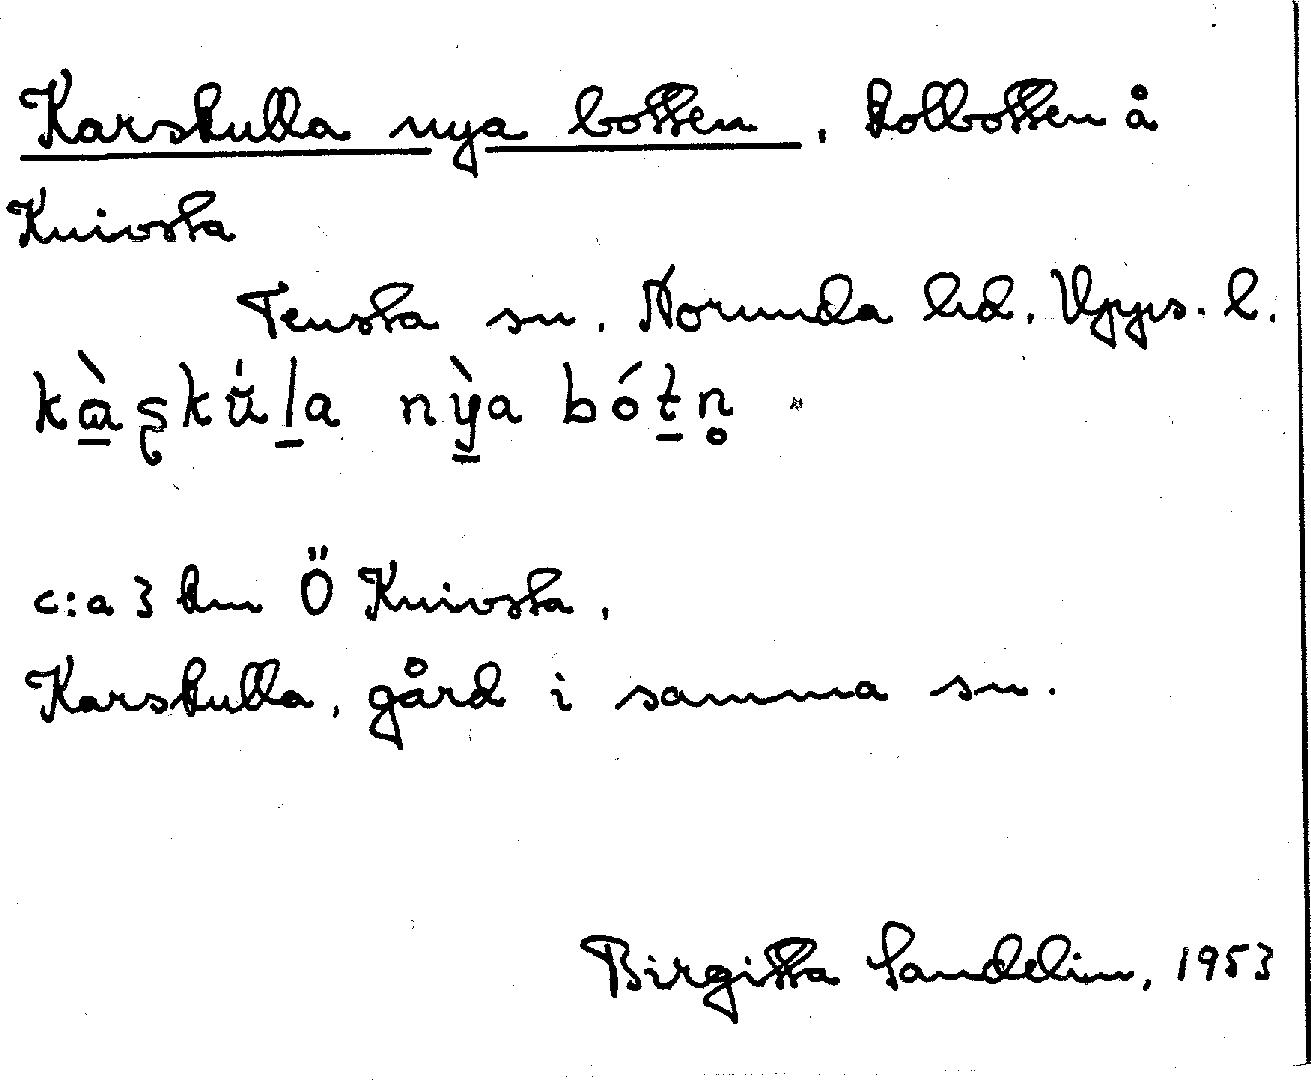 Karskulla nya botten, kolbotten å
Knivsta
Tensta sn. Norunda hd. Upps. l.
kà̱ʂkŭ̍ḻa nỳ̱a bóṯn̥
c:a 3 km Ö Knivsta.
Karskulla, gård i samma sn.
Birgitta Sandelin, 1953